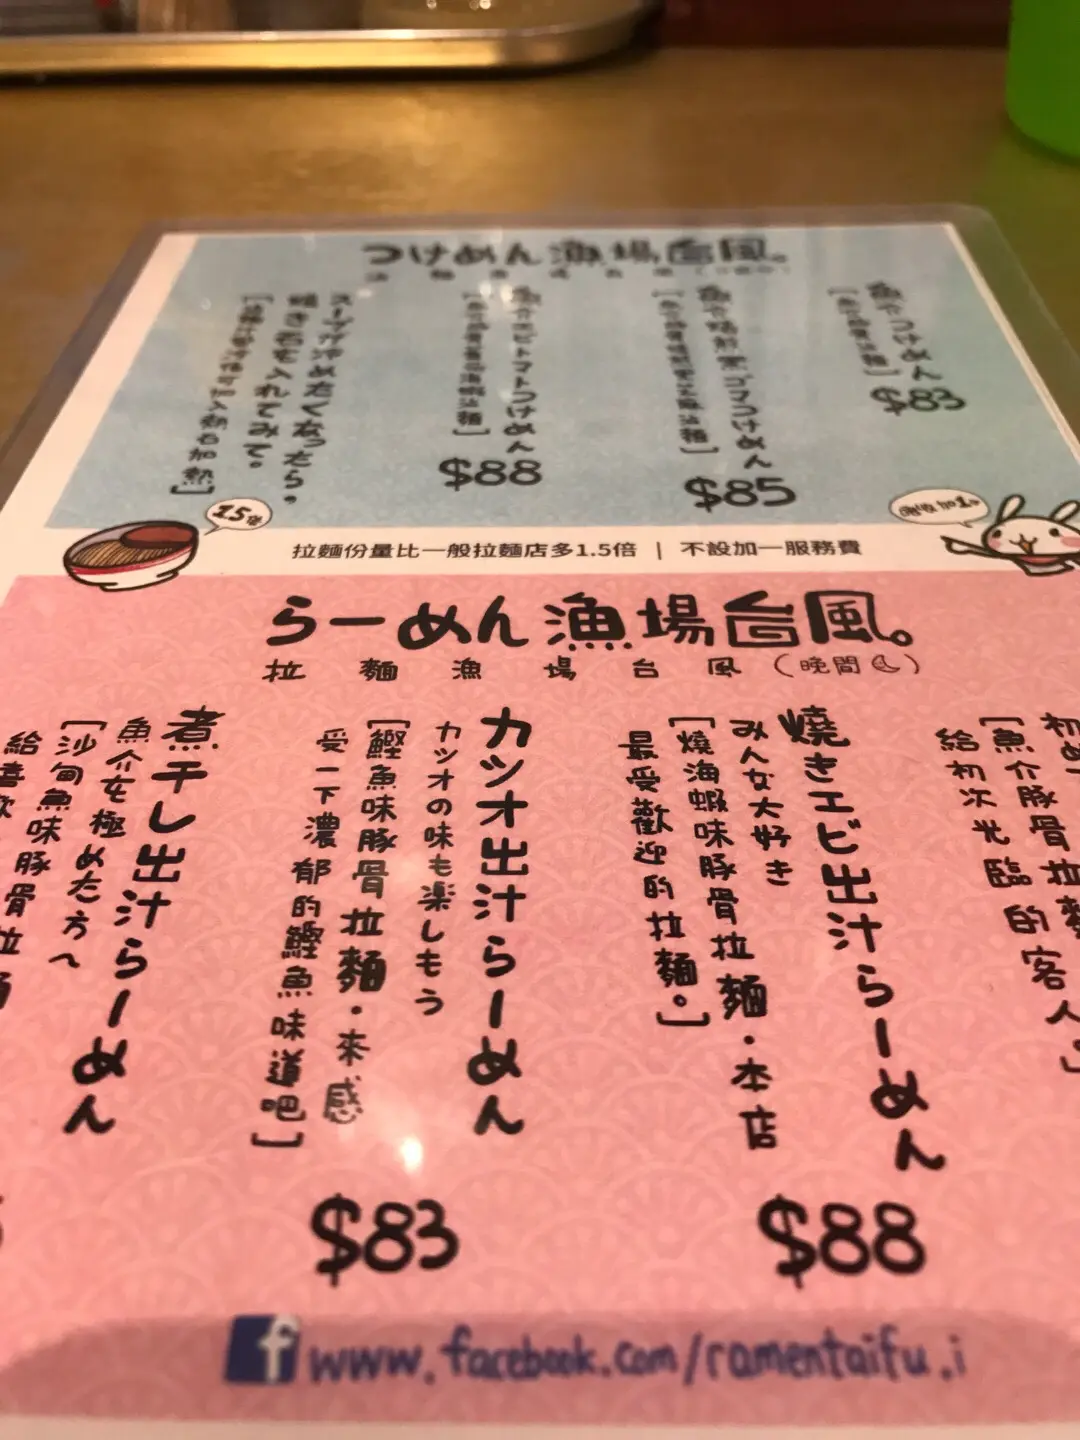 つけめん漁場台風。
魚介つけめん
$83
$85
魚介エビトマトつけめん
$88
スープが冷めたくなったら。
焼き石を入れてみて。
1.5倍
拉麵份量比一般拉麵店多1.5倍 | 不設加一服務費
らーめん漁場台風。
拉麵漁場台風(晚間)
初め
[魚介豚骨拉麵
給初次光臨的客人。]
焼きエビ出汁らーめん
みんな大好き
[燒海蝦味豚骨拉麵・本店
最受歡迎的拉麵。]
$88
カツオ出汁らーめん
カツオの味も楽しもう
[鰹魚味豚骨拉麵・來感
受一下濃郁的鰹魚味道吧]
$83
煮干し出汁らーめん
魚介を極めた方へ
[沙甸魚味豚骨拉麵
給喜歡
www.facebook.com/ramentaifu.i